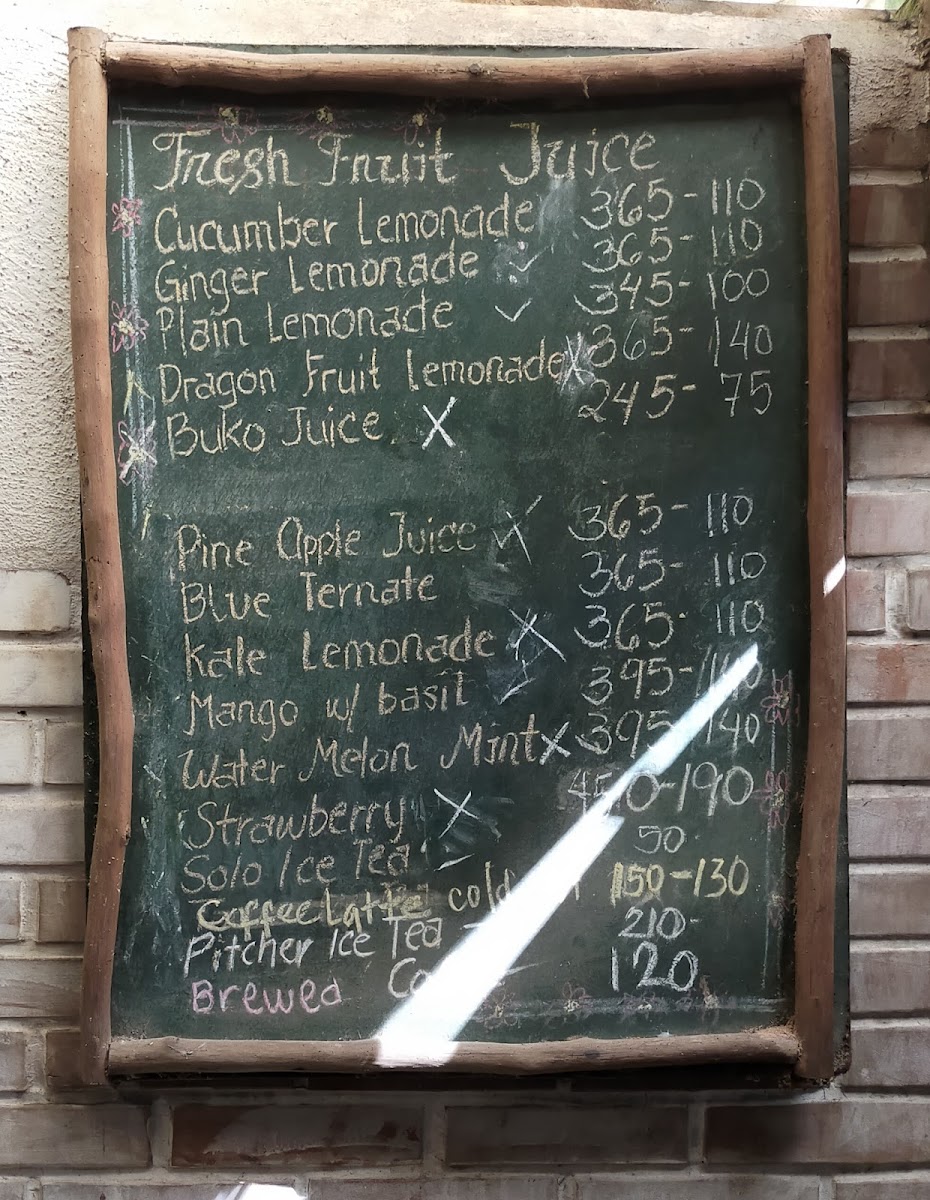 Fresh Fruit Juice
Cucumber Lemonade 365-110
Ginger Lemonade ✓ 365-110
Plain Lemonade ✓ 345-100
Dragon Fruit Lemonade X 365-140
Buko Juice X 245-75
Pine Apple Juice X 365-110
Blue Ternate 365-110
Kale Lemonade X 365-110
Mango w/ basil 395-
Water Melon Mint X 395 140
Strawberry X -190
Solo Ice Tea 50
Coffee Latte cold 150-130
Pitcher Ice Tea - 210-
Brewed 120